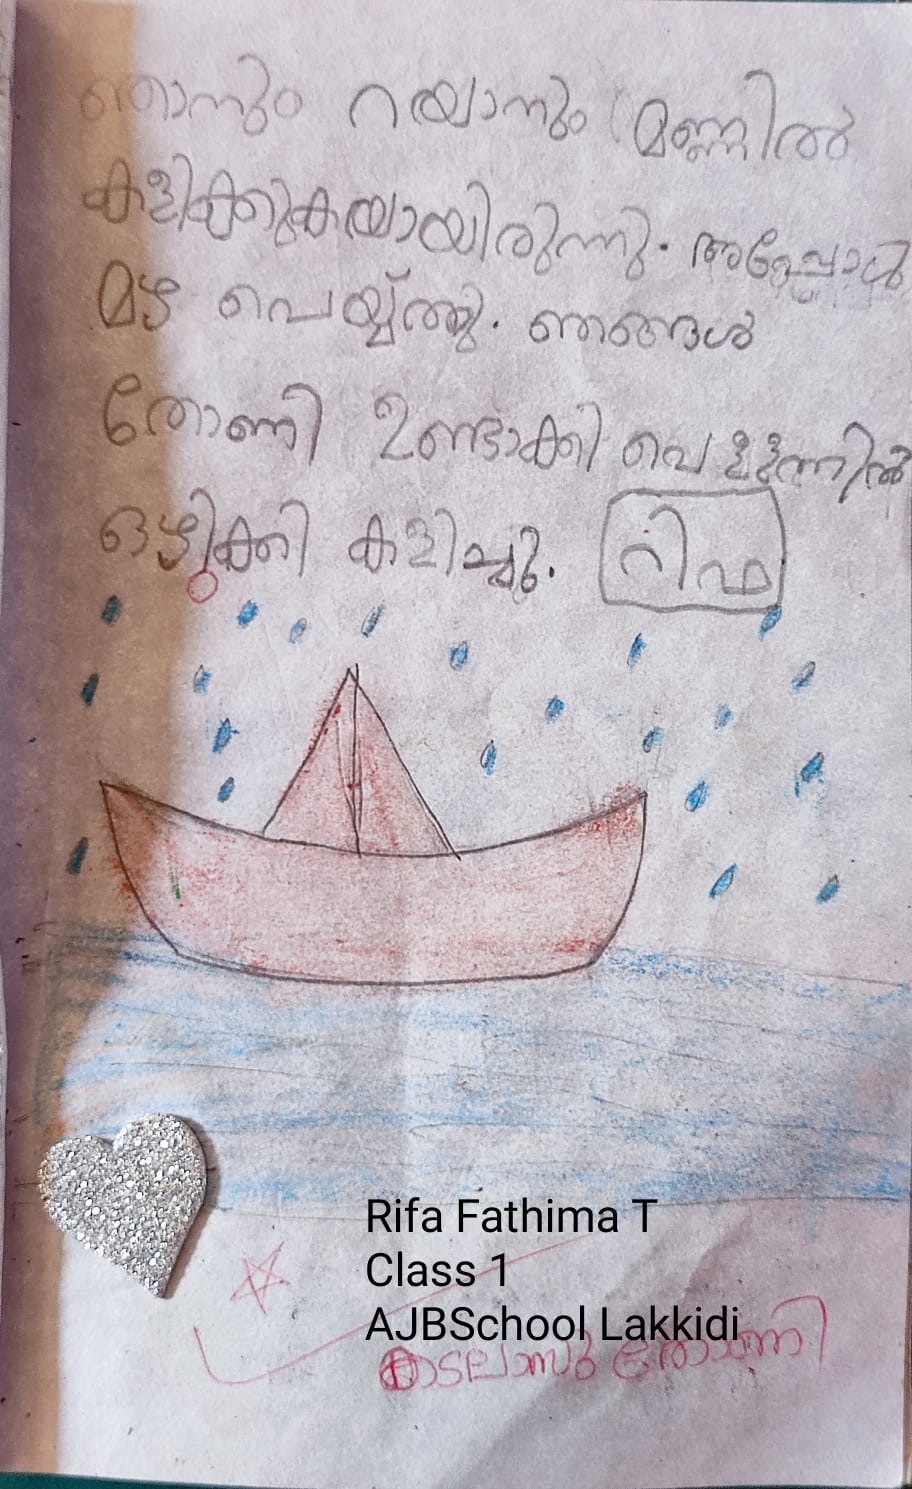 ഞാനും റയാനും മണ്ണിൽ
കളിക്കുകയായിരുന്നു. അപ്പോൾ
മഴ പെയ്യ്തു. ഞങ്ങൾ
തോണി ഉണ്ടാക്കി വെള്ളത്തിൽ
ഒഴുക്കി കളിച്ചു. റിഫ
Rifa Fathima T
Class 1
AJBSchool Lakkidi
കടലാസു തോണി